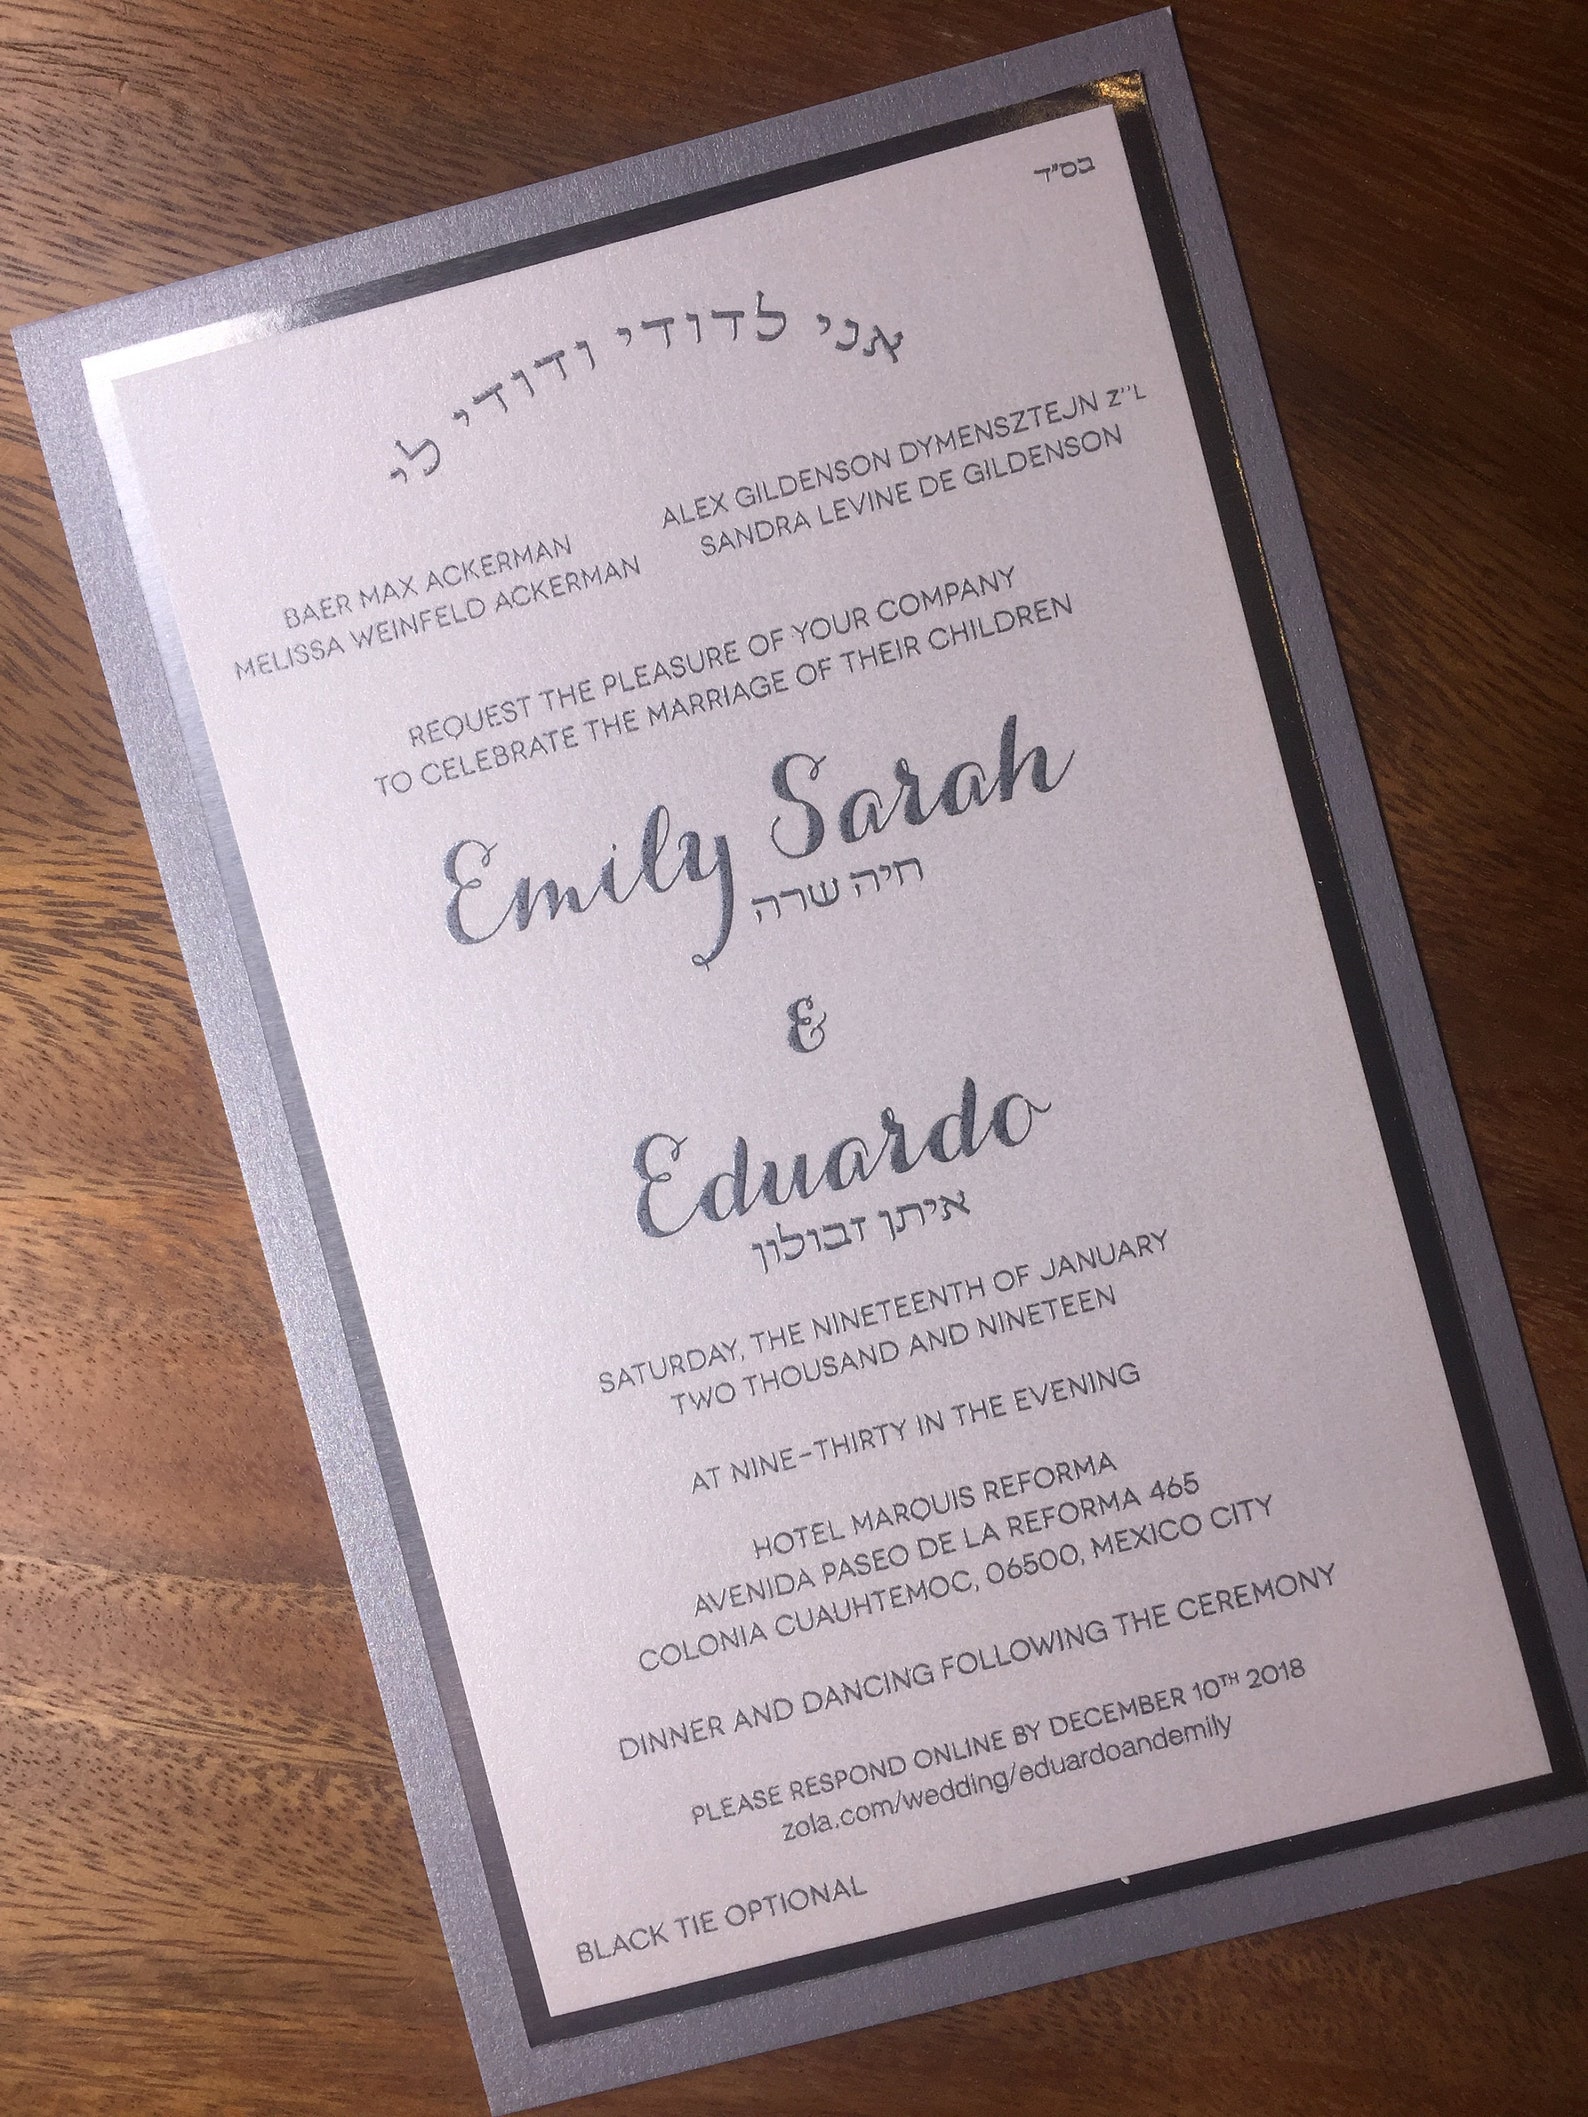 בס"ד
אני לדודי ודודי לי
BAER MAX ACKERMAN
MELISSA WEINFELD ACKERMAN
ALEX GILDENSON DYMENSZTEJN Z''L
SANDRA LEVINE DE GILDENSON
REQUEST THE PLEASURE OF YOUR COMPANY
TO CELEBRATE THE MARRIAGE OF THEIR CHILDREN
Emily Sarah
חיה שרה
&
Eduardo
איתן זבולון
SATURDAY, THE NINETEENTH OF JANUARY
TWO THOUSAND AND NINETEEN
AT NINE-THIRTY IN THE EVENING
HOTEL MARQUIS REFORMA
AVENIDA PASEO DE LA REFORMA 465
COLONIA CUAUHTEMOC, 06500, MEXICO CITY
DINNER AND DANCING FOLLOWING THE CEREMONY
PLEASE RESPOND ONLINE BY DECEMBER 10TH 2018
zola.com/wedding/eduardoandemily
BLACK TIE OPTIONAL